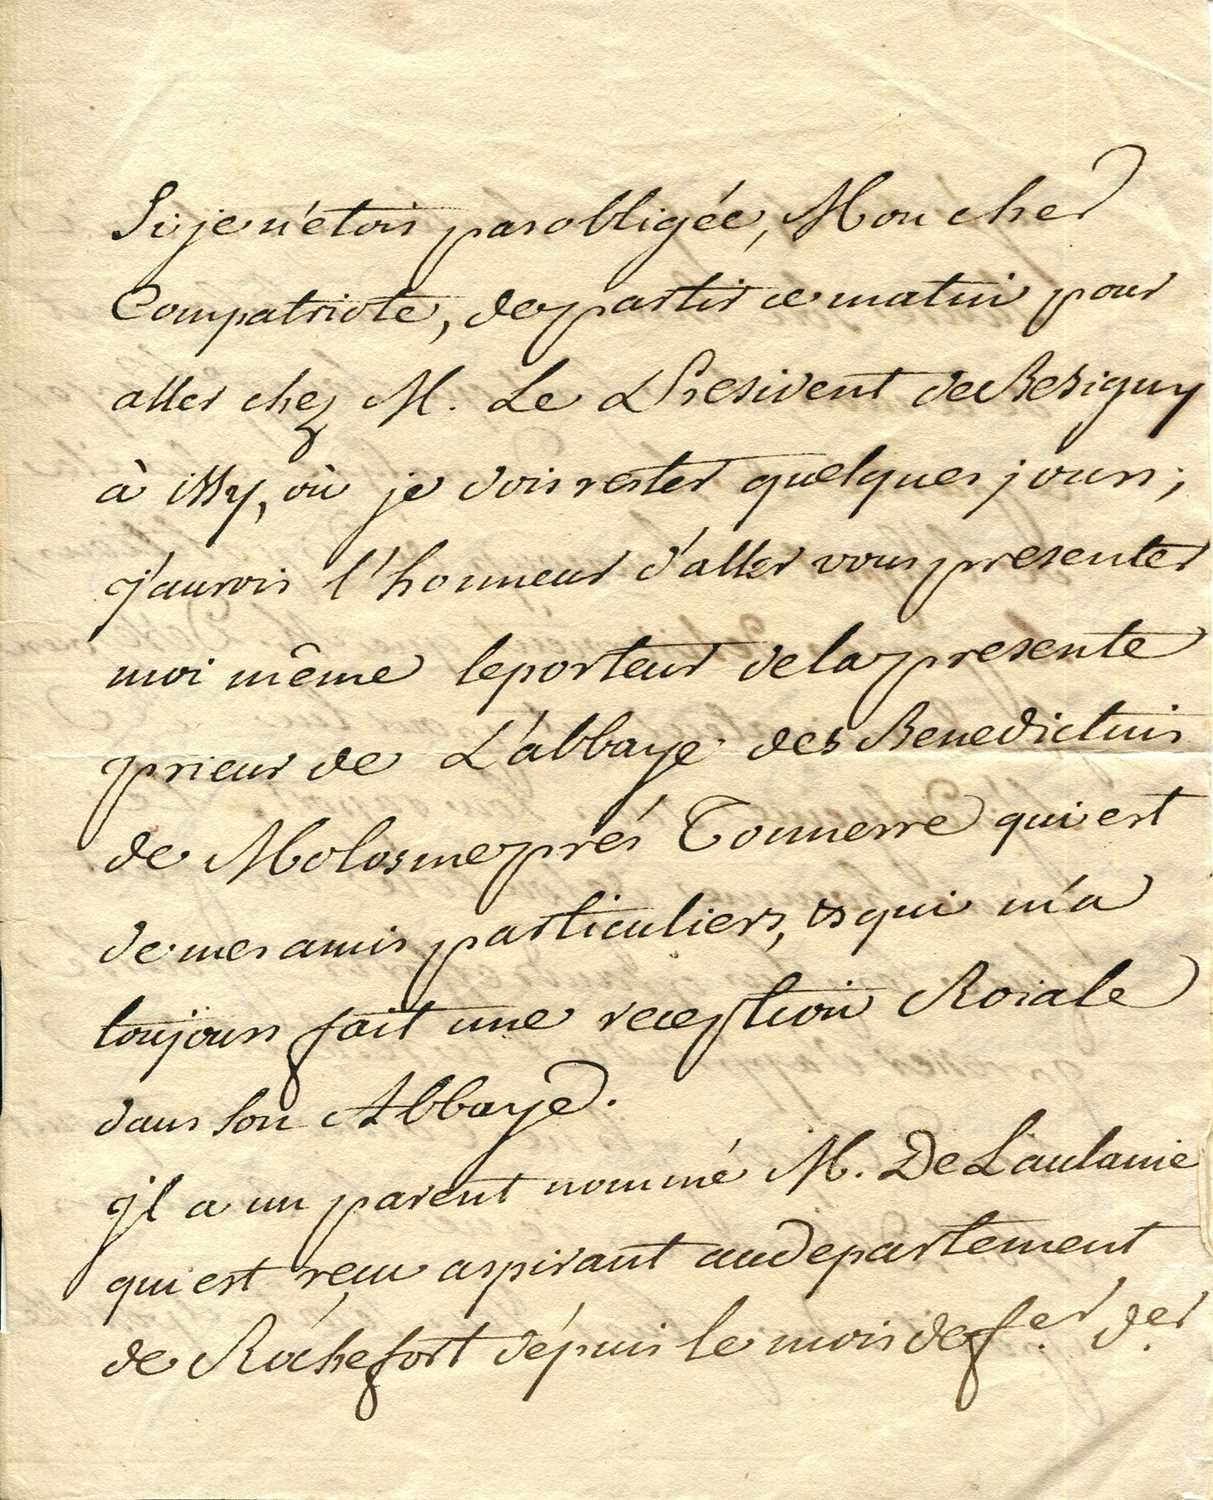 Si je n'etois pas obligée, Mon cher
Compatriote, de partir ce matin pour
aller chez M. Le President de
à issy, où je dois rester quelques jours;
j'aurois l'honneur d'aller vous presenter
moi même le porteur de la presente
prieur de L'abbaye des Benedictins
de Molosme prés Tonnerre qui est
de mes amis particuliers, & qui m'a
toujours fait une reception Roiale
dans son Abbaye.
il a un parent nommé M. De Laulanie
qui est reçu aspirant au departement
de Rochefort dépuis le mois de f.er d.er